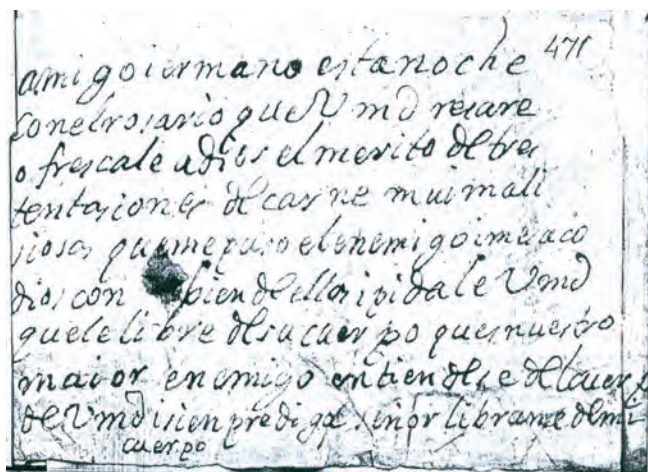 471
amigo i ermano esta noche
con el rosario que Vmd resare
ofrescale a dios el merito de tres
tentasiones de carne mui mali
siosas que me puso el enemigo i me saco
dios con bien de ellas i pidale Vmd
que le libre de su cuerpo que es nuestro
maior enemigo entiendese del cuerpo
de Vmd i sienpre diga señor librame de mi
cuerpo